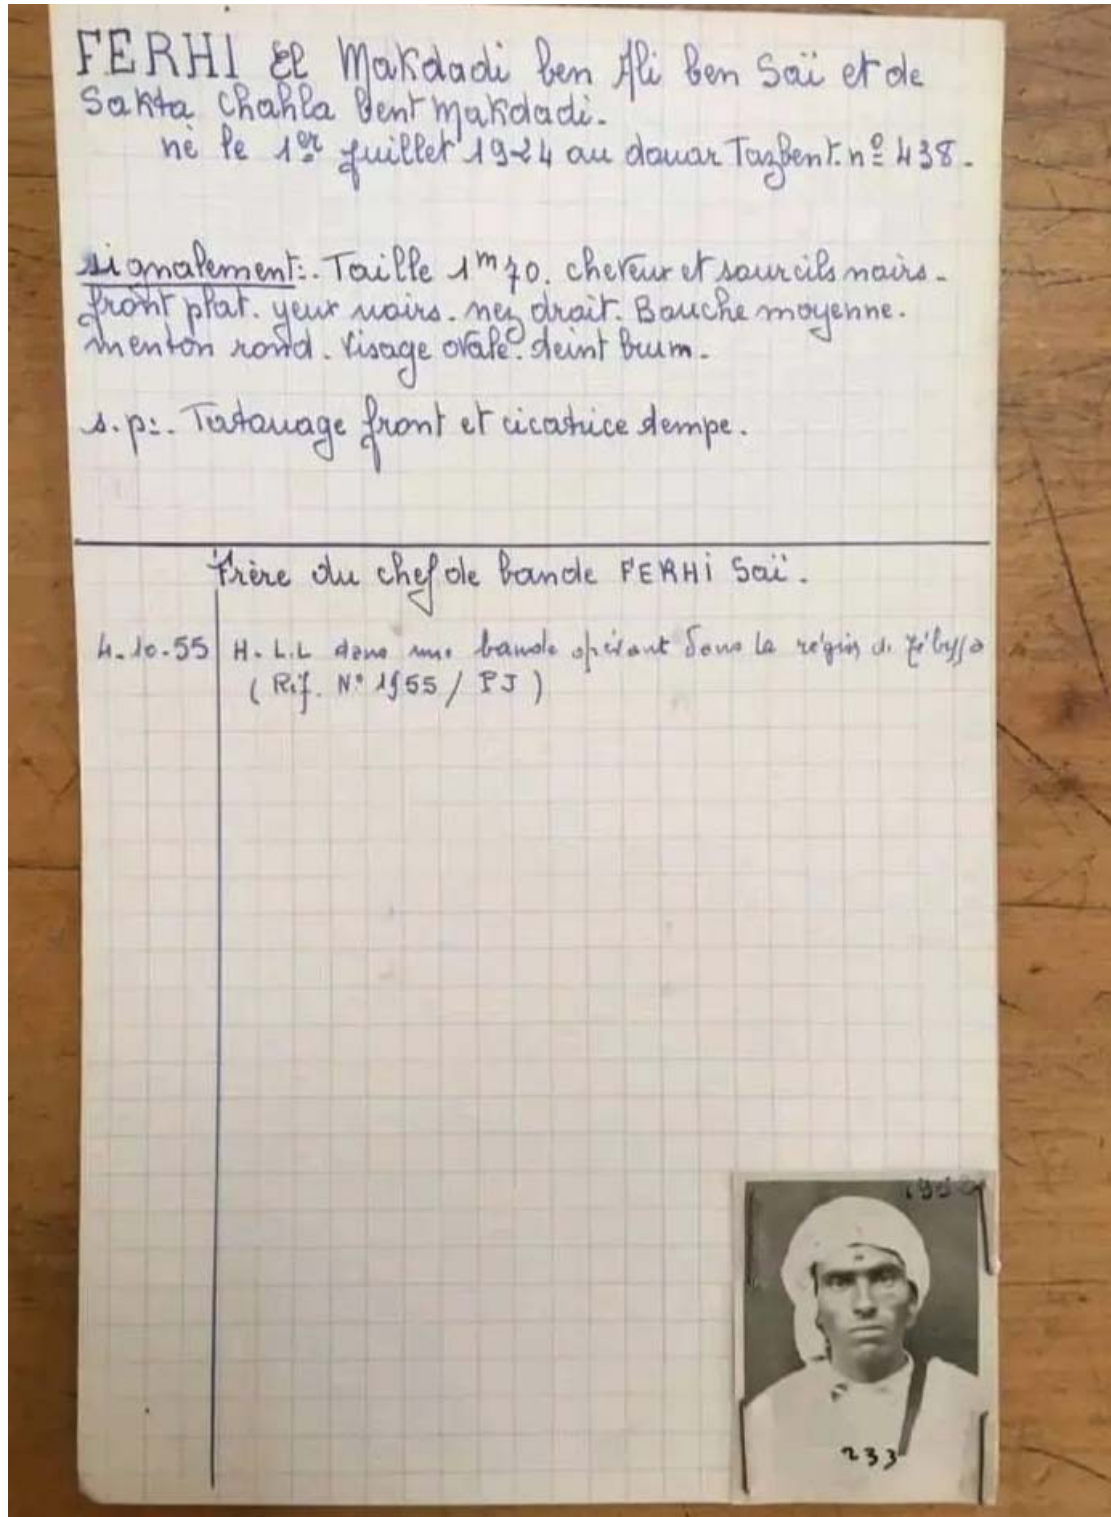 FERHI El Makdadi ben Ali ben Saï et de
Sakta Chahla bent Makdadi.
né le 1er juillet 1924 au douar Tazbent. nº 438.
signalement:. Taille 1m70. cheveux et sourcils noirs.
front plat. yeux noirs. nez droit. Bouche moyenne.
menton rond. Visage ovale. teint brun.
s.p:. Tatouage front et cicatrice tempe.
Frère du chef de bande FERHI Saï.
4.10.55 H.L.L dans une bande opérant dans la région de Tébessa
(Réf. Nº 1955 / PJ)
233